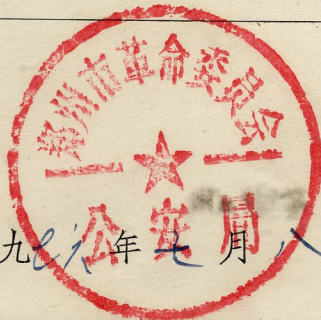 州市革命委员会
公安局
九七六年七月八